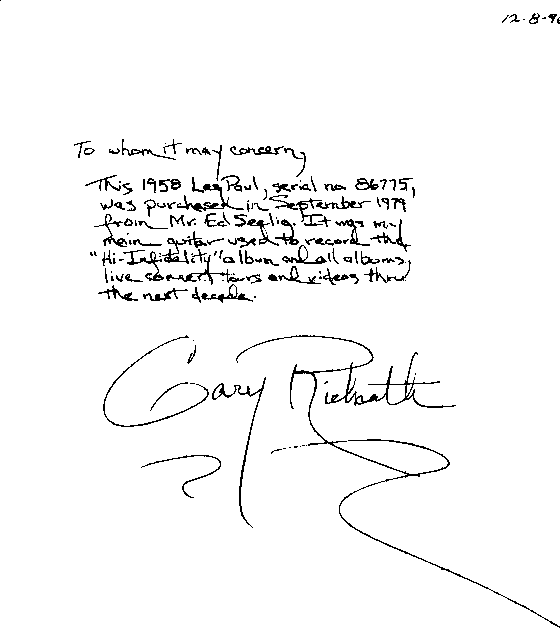 12-8-9
To whom it may concern,
This 1958 Les Paul, serial no 86775,
was purchased in September 1979
from Mr. Ed Seelig. It was my
main guitar used to record the
"Hi-Infidelity" album and all albums,
live concert tours and videos thru
the next decade.
Gary Richrath